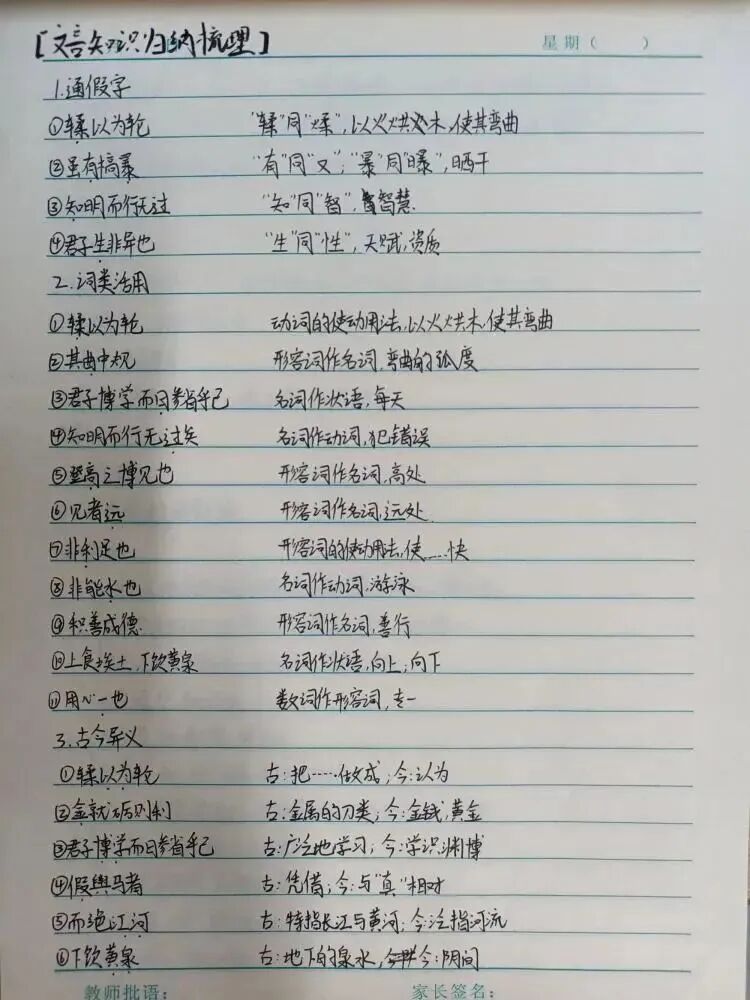 [文言知识归纳梳理]
星期( )
1.通假字
①輮以为轮 "輮"同"煣",以火烘木,使其弯曲
②虽有槁暴 "有"同"又";"暴"同"曝",晒干
③知明而行无过 "知"同"智",智慧.
④君子生非异也 "生"同"性",天赋,资质
2.词类活用
①輮以为轮 动词的使动用法,以火烘木,使其弯曲
②其曲中规 形容词作名词,弯曲的弧度
③君子博学而日参省乎己 名词作状语,每天
④知明而行无过矣 名词作动词,犯错误
⑤登高之博见也 形容词作名词,高处
⑥见者远 形容词作名词,远处
⑦非利足也 形容词的使动用法,使……快
⑧非能水也 名词作动词,游泳
⑨积善成德 形容词作名词,善行
⑩上食埃土,下饮黄泉 名词作状语,向上;向下
⑪用心一也 数词作形容词,专一
3.古今异义
①輮以为轮 古:把……做成;今:认为
②金就砺则利 古:金属的刀类;今:金钱,黄金
③君子博学而日参省乎己 古:广泛地学习;今:学识渊博
④假舆马者 古:凭借;今:与"真"相对
⑤而绝江河 古:特指长江与黄河;今泛指河流
⑥下饮黄泉 古:地下的泉水,今:阴间
教师批语: 家长签名: